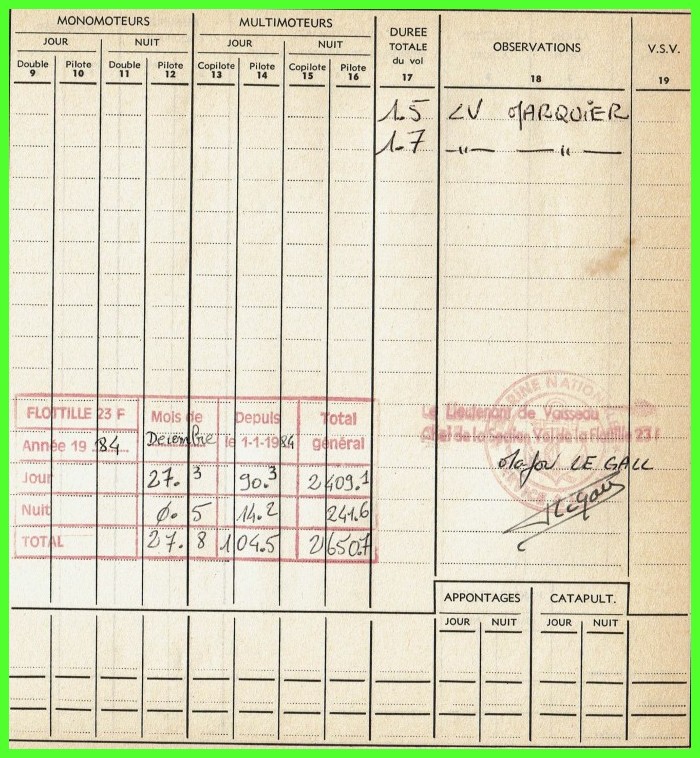 MONOMOTEURS MULTIMOTEURS DUREE TOTALE du vol OBSERVATIONS V.S.V.
JOUR NUIT JOUR NUIT
Double Pilote Double Pilote Copilote Pilote Copilote Pilote
9 10 11 12 13 14 15 16 17 18 19
1.5 LV MARQUIER
1.7 —"— —"—
FLOTTILLE 23 F Mois de Depuis Total
Année 19 84 Décembre le 1-1-1984 général
Jour 27.3 90.3 2409.1
Nuit 0.5 14.2 241.6
TOTAL 27.8 104.5 2650.7
Le Lieutenant de Vaisseau
Chef de la Section Vol de la Flottille 23 F
Major LE GALL
APPONTAGES CATAPULT.
JOUR NUIT JOUR NUIT